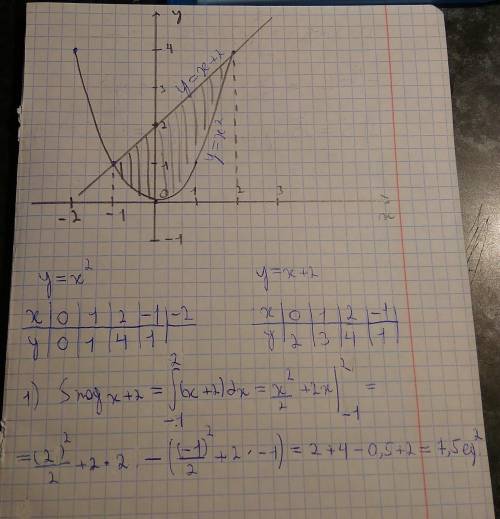 y
4
y=x+2
3
2
y=x²
1
-2 -1 0 1 2 3 x
-1
y=x² y=x+2
x 0 1 2 -1 -2 x 0 1 2 -1
y 0 1 4 1 y 2 3 4 1
1) Sпод x+2 = ∫₋₁² (x+2)dx = x²/2 + 2x |₋₁² =
= (2)²/2 + 2·2 - ((-1)²/2 + 2·-1) = 2+4-0,5+2 = 7,5 ед²